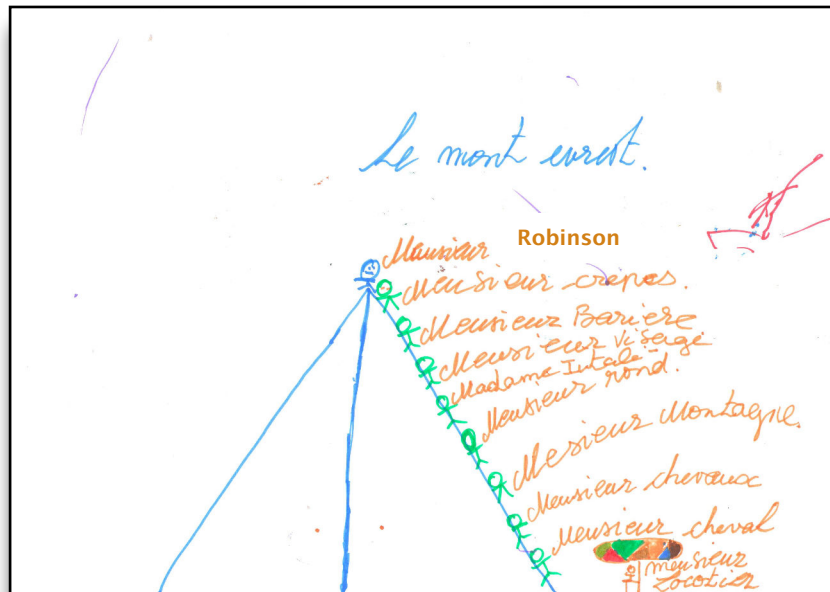 Le mont evrest.
Mansieur Robinson
Mensieur crepes.
Mensieur Bariere
Mensieur Viserge
Madame Intale
Mensieur rond.
Mesieur Montagne.
Mensieur chevaux
Mensieur cheval
mensieur
Cocotier